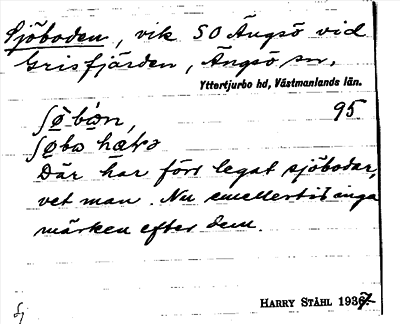 Sjöboden, vik SO Ängsö vid
Grisfjärden, Ängsö sn,
Yttertjurbo hd, Västmanlands län.
95
Där har förr legat sjöbodar,
vet man. Nu emellertid inga
märken efter dem.
HARRY STÅHL 1937
Sj